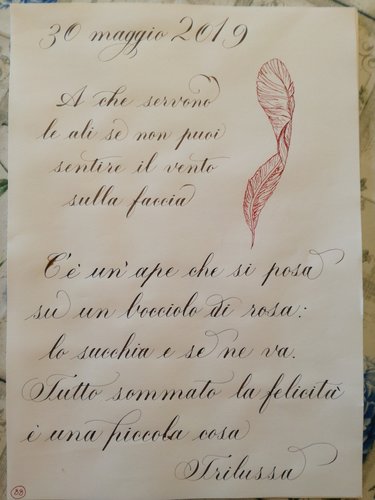 30 maggio 2019
A che servono
le ali se non puoi
sentire il vento
sulla faccia
C'è un'ape che si posa
su un bocciolo di rosa:
lo succhia e se ne va.
Tutto sommato la felicità
è una piccola cosa
Trilussa
88